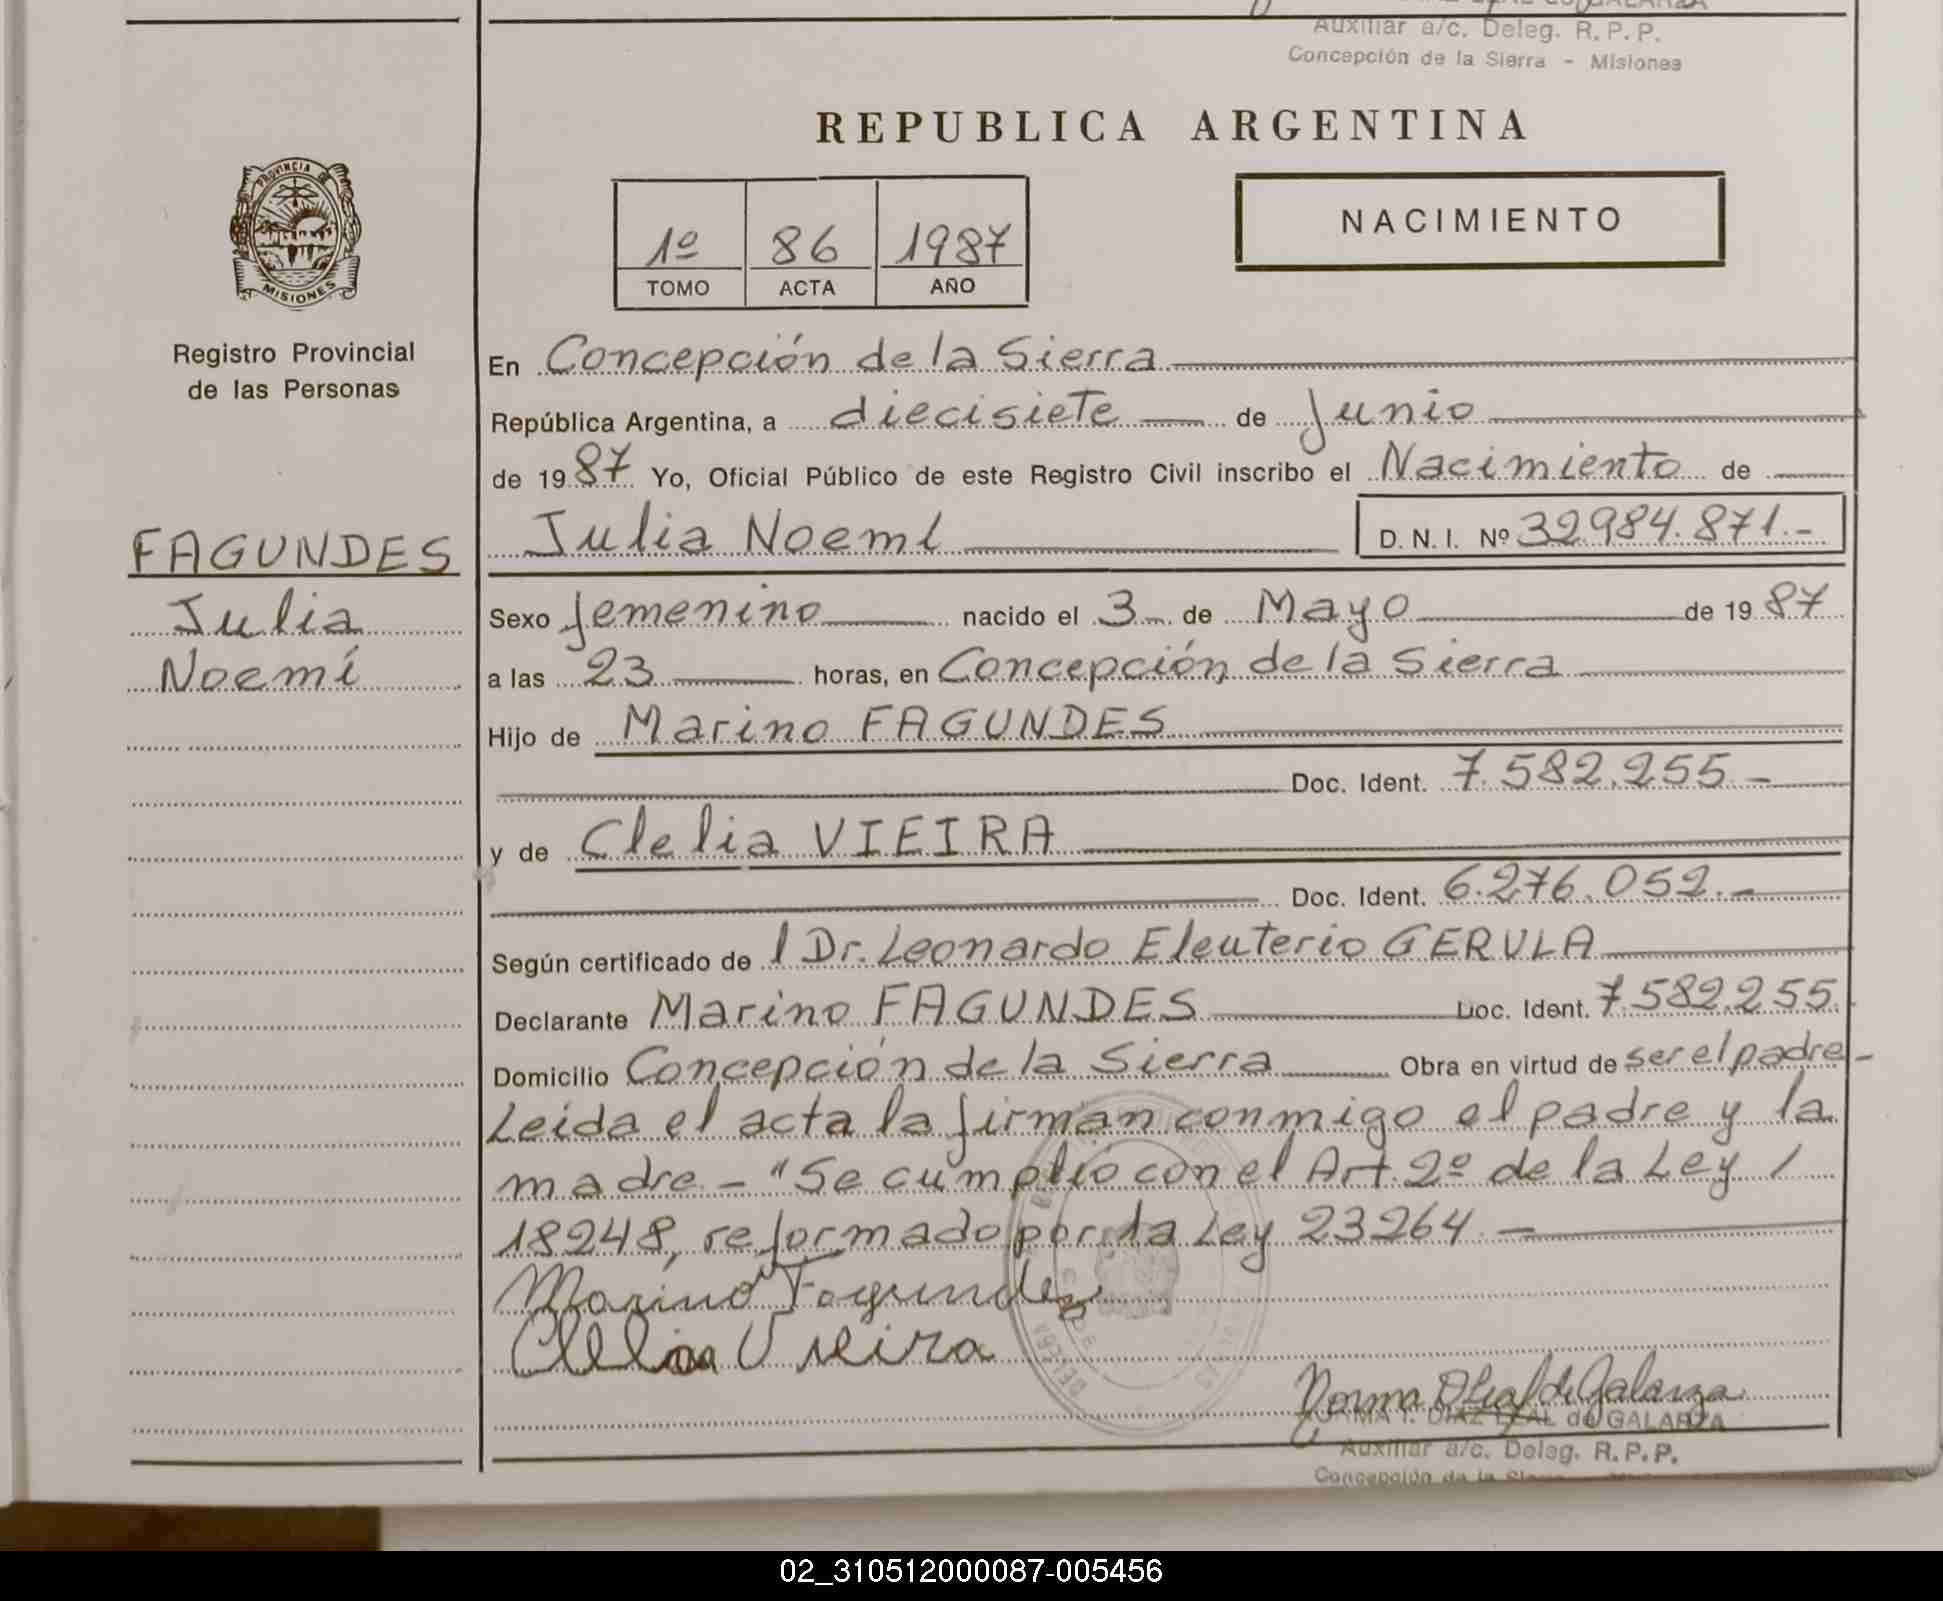 Auxiliar a/c. Deleg. R. P. P.
Concepción de la Sierra - Misiones
REPUBLICA ARGENTINA
PROVINCIA DE
MISIONES
Registro Provincial
de las Personas
1º 86 1987
TOMO ACTA AÑO
NACIMIENTO
En Concepción de la Sierra
República Argentina, a diecisiete de Junio
de 1987 Yo, Oficial Público de este Registro Civil inscribo el Nacimiento de
Julia Noemí D. N. I. Nº 32.984.871.-
FAGUNDES
Julia
Noemí
Sexo femenino nacido el 3 de Mayo de 1987
a las 23 horas, en Concepción de la Sierra
Hijo de Marino FAGUNDES
Doc. Ident. 7.582.255.-
y de Clelia VIEIRA
Doc. Ident. 6.276.052.-
Según certificado de l Dr. Leonardo Eleuterio GERULA
Declarante Marino FAGUNDES Doc. Ident. 7.582.255.
Domicilio Concepción de la Sierra Obra en virtud de ser el padre-
Leída el acta la firman conmigo el padre y la
madre.- "Se cumplió con el Art. 2º de la Ley /
18248, reformado por la Ley 23264.-
Marino Fagundez
Clelia Vieira
Norma D Leal de Galarza
NORMA I. DIAZ LEAL de GALARZA
Auxiliar a/c. Deleg. R. P. P.
Concepción de la
02_310512000087-005456